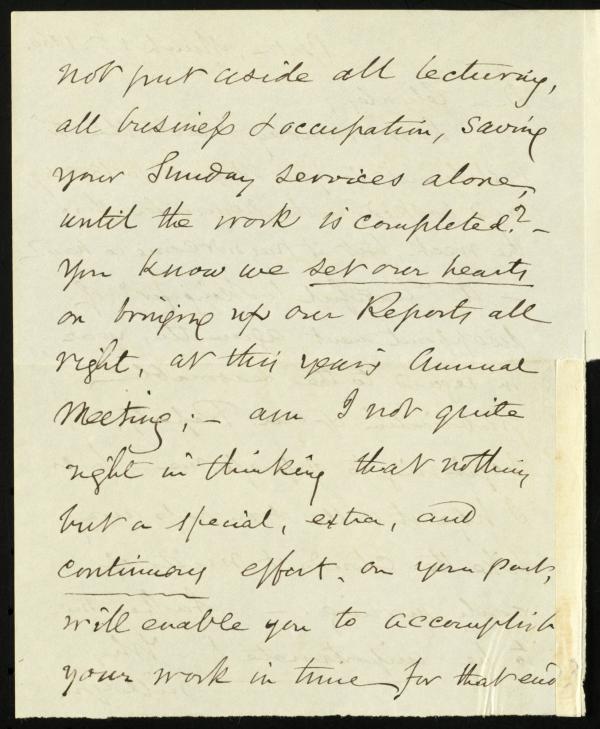 not put aside all lecturing,
all business & occupation, saving
your Sunday services alone,
until the work is completed? –
You know we set our hearts
on bringing up our Reports all
right, at this year's Annual
Meeting; – am I not quite
right in thinking that nothing
but a special, extra, and
continuous effort, on your part,
will enable you to accomplish
your work in time for that end